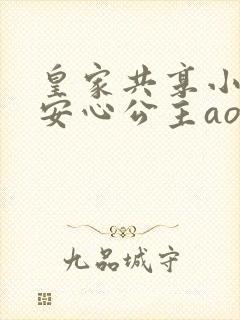 皇家共享小
安心公主ao
九品城守